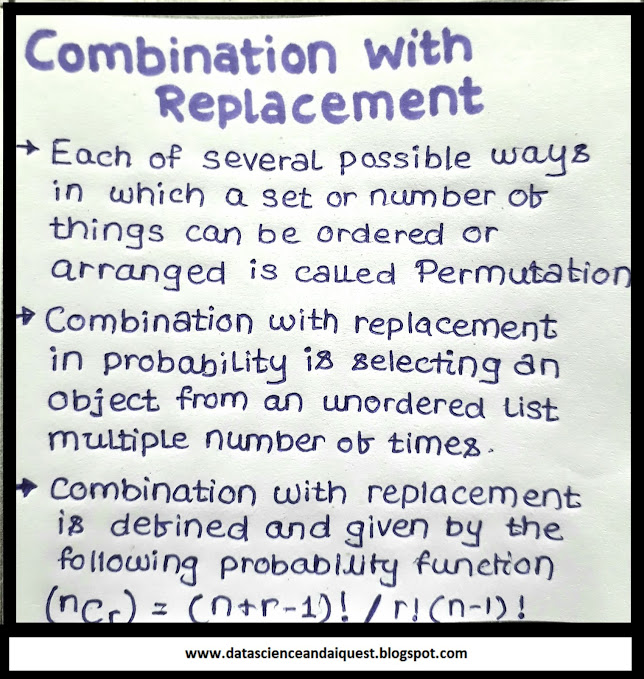 Combination with
Replacement
→ Each of several possible ways
in which a set or number of
things can be ordered or
arranged is called Permutation
→ Combination with replacement
in probability is selecting an
object from an unordered list
multiple number of times.
→ Combination with replacement
is defined and given by the
following probability function
(nCr) = (n+r-1)! / r!(n-1)!
www.datascienceandaiquest.blogspot.com